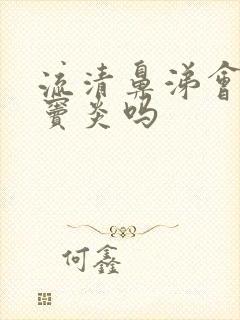 流清鼻涕會
竇炎嗎
何鑫